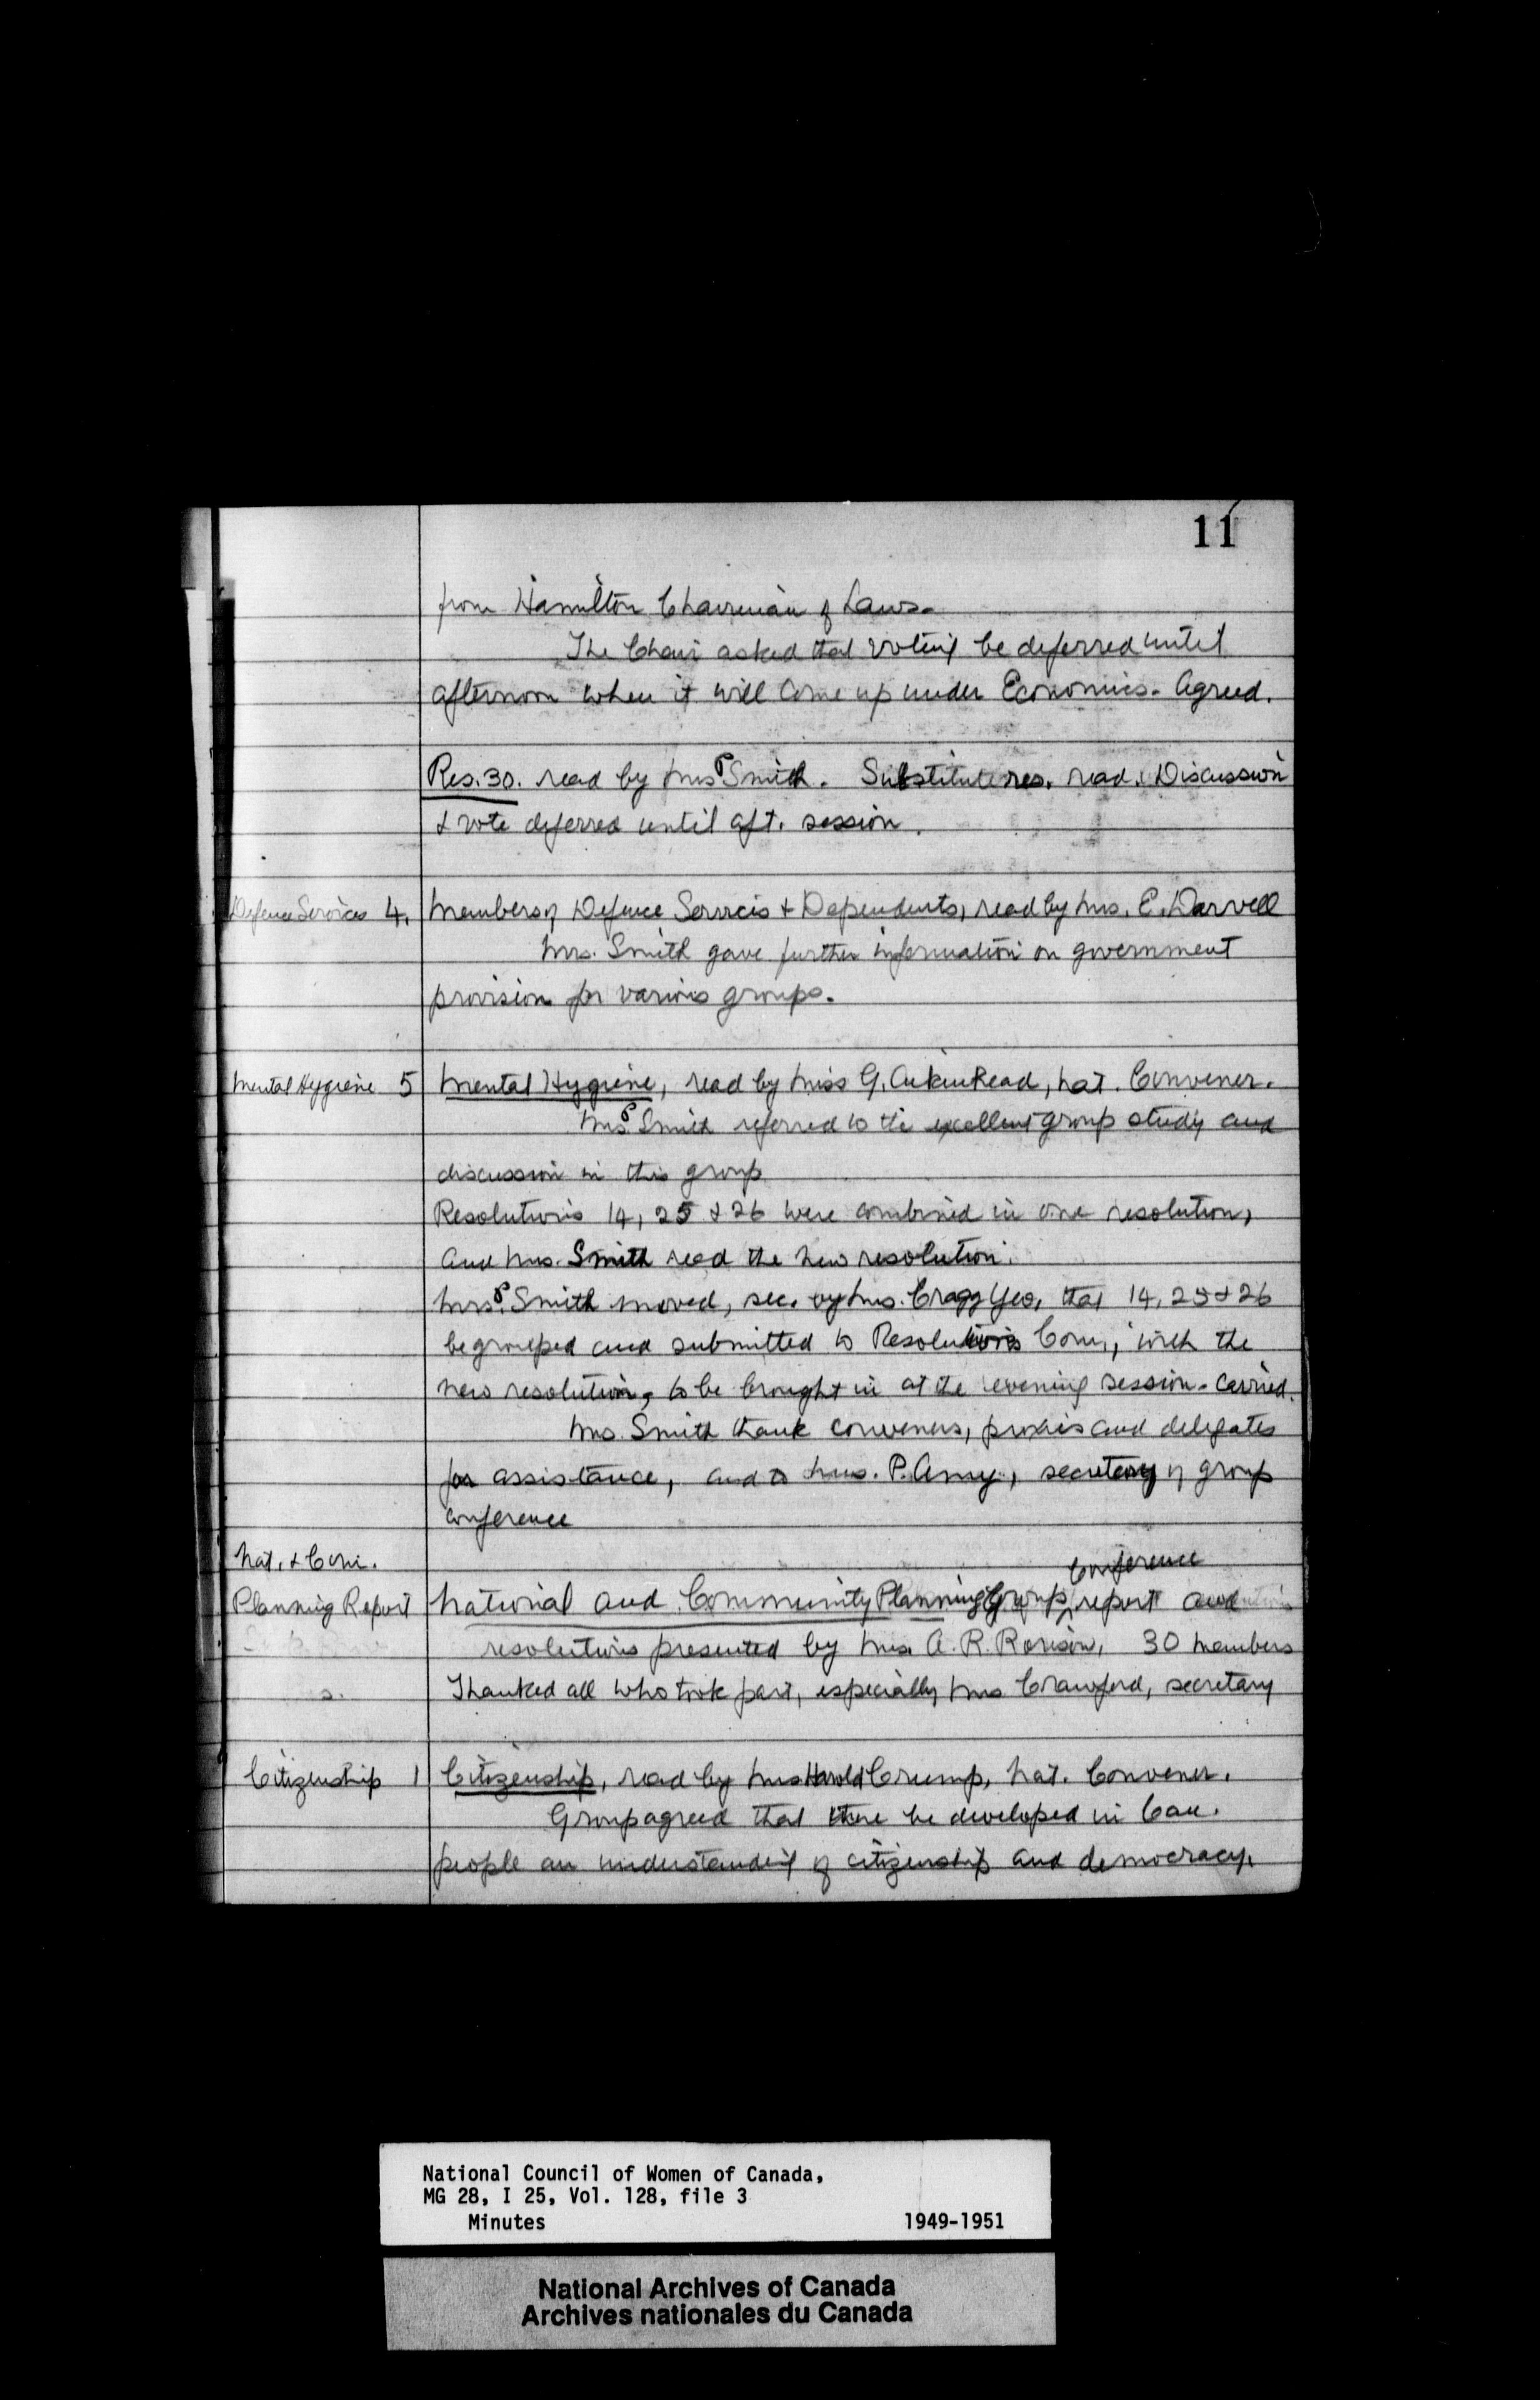 11
from Hamilton Chairman of Laws.
The Chair asked that voting be deferred until
afternoon when it will come up under Economics. Agreed.
Res. 30. read by Mrs Smith. Substitute res. read. Discussion
& vote deferred until aft. session.
Defence Services 4. Members of Defence Services & Dependents, read by Mrs. E. Darvell
Mrs. Smith gave further information on government
provision for various groups.
Mental Hygiene 5 Mental Hygiene, read by Miss G. Read, Nat. Convener.
Mrs. Smith referred to the excellent group study and
discussion in this group
Resolutions 14, 25 & 26 were combined in one resolution,
and Mrs. Smith read the new resolution.
Mrs. Smith moved, sec. by Mrs. Cragg Yeo, that 14, 25 & 26
be grouped and submitted to Resolutions Com., with the
new resolution, to be brought in at the evening session. Carried.
Mrs. Smith thank conveners, proxies and delegates
for assistance, and to Mrs. P. Amy, secretary of group
conference
Nat. & Com.
Planning Report National and Community Planning Group Conference report and
resolutions presented by Mrs. A. R. Rorison, 30 members
Thanked all who took part, especially Mrs Crawford, secretary
Citizenship 1 Citizenship, read by Mrs Harold Crump, Nat. Convener.
Group agreed that there be developed in Can.
people an understanding of citizenship and democracy.
National Council of Women of Canada,
MG 28, I 25, Vol. 128, file 3
Minutes 1949-1951
National Archives of Canada
Archives nationales du Canada